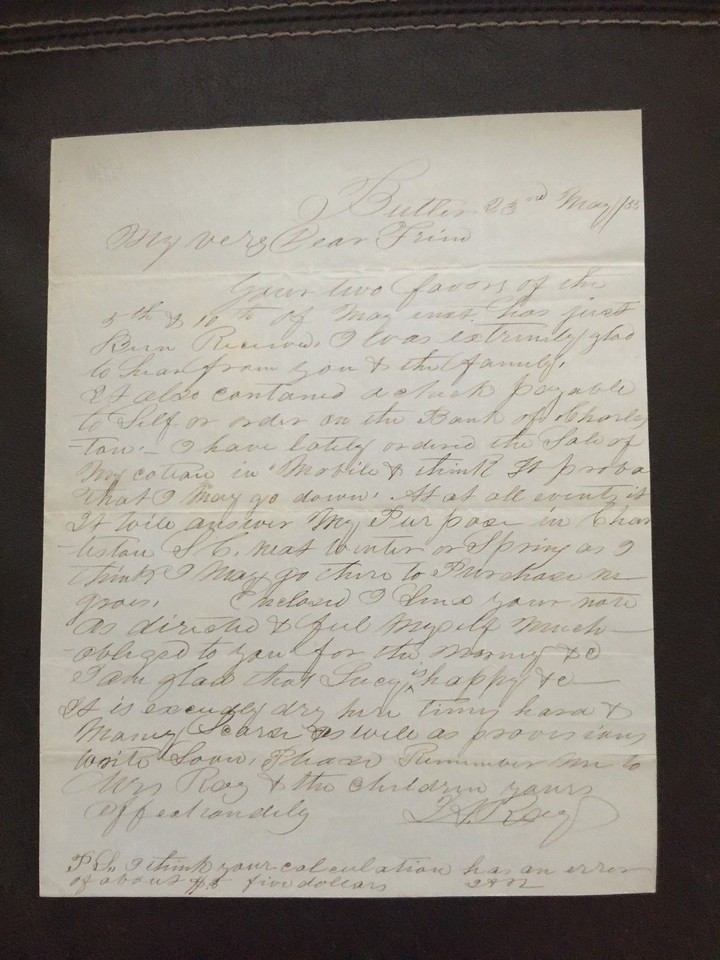 Butler 23rd May //55
My very Dear Frind
Your two favors of the
5th & 10th of May inst. has just
Been Received I was extrimily glad
to hear from you & the family.
It also contained a check payable
to Self or order on the Bank of Charles
-ton.- I have lately ordered the Sale of
My cotton in Mobile & think It proba
that I may go down. At at all events it
It will answer My Purpose in Char
-leston S.C. next winter or Spring as I
think I May go there to Purchase ne-
groes. Enclosed I Send your note
as directed & feel Myself Much
obliged to you for the Money &c
I am glad that Lucy is happy &c-
It is excudly dry here times hard &
Money Scarse as well as provisions
write Soon, Please Remember me to
Mrs Roy & the children yours
Affectiondily Roy
P.S. I think your calculation has an error
of about five dollars